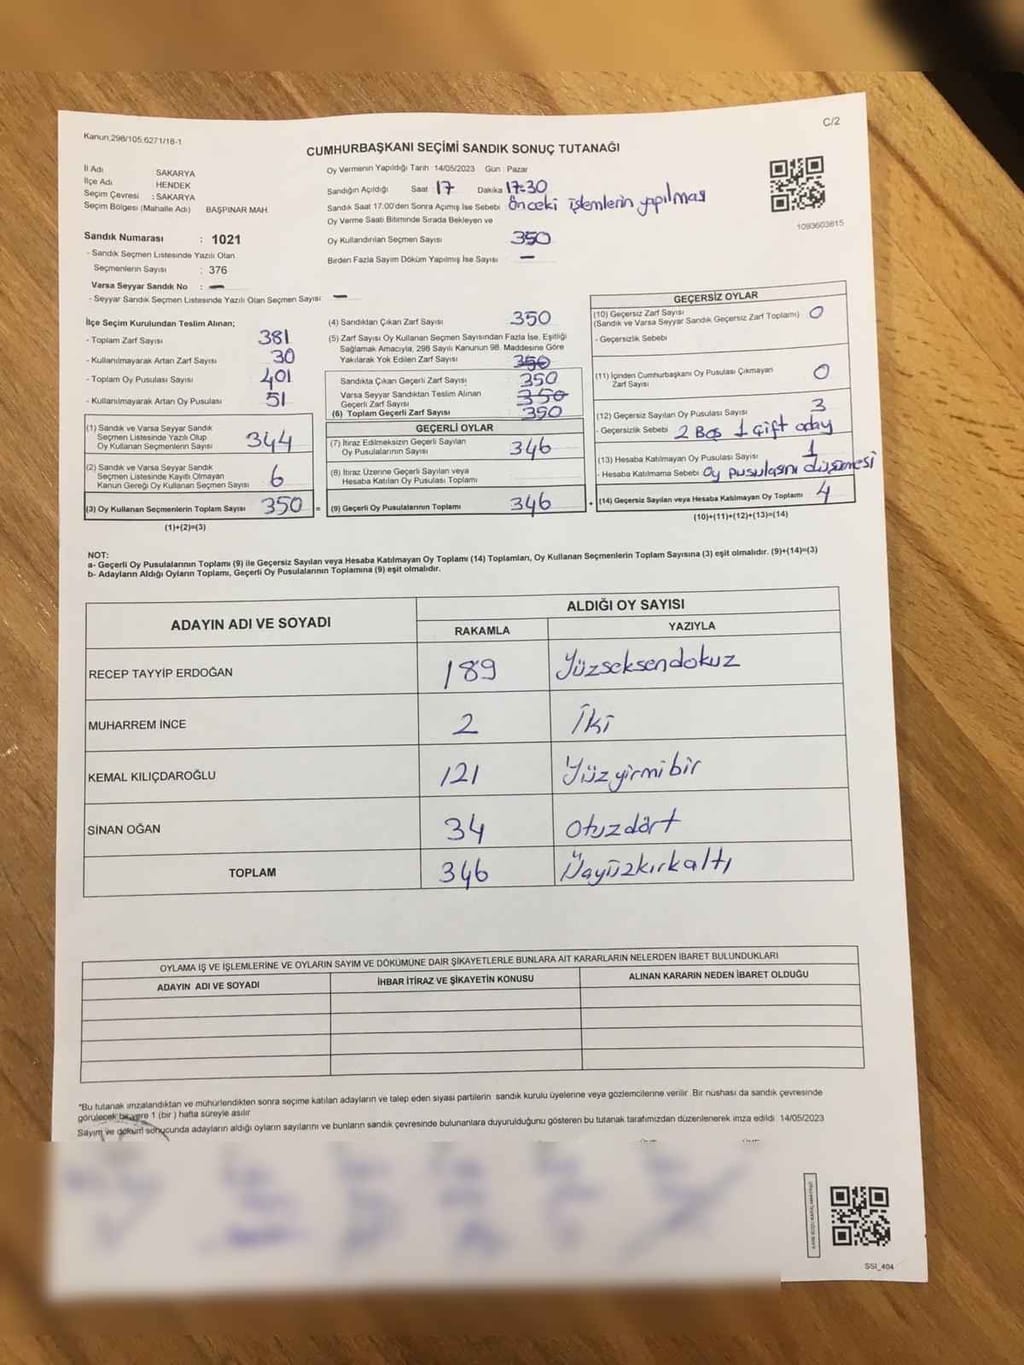 Kanun:298/105.6271/18-1
C/2
CUMHURBAŞKANI SEÇİMİ SANDIK SONUÇ TUTANAĞI
İl Adı SAKARYA
İlçe Adı : HENDEK
Seçim Çevresi : SAKARYA
Seçim Bölgesi (Mahalle Adı) BAŞPINAR MAH.
Sandık Numarası : 1021
- Sandık Seçmen Listesinde Yazılı Olan
Seçmenlerin Sayısı : 376
Varsa Seyyar Sandık No : —
- Seyyar Sandık Seçmen Listesinde Yazılı Olan Seçmen Sayısı —
Oy Vermenin Yapıldığı Tarih :14/05/2023 Gün : Pazar
Sandığın Açıldığı Saat 17 Dakika 17:30
Sandık Saat 17.00'den Sonra Açımış İse Sebebi Önceki işlemlerin yapılması
Oy Verme Saati Bitiminde Sırada Bekleyen ve
Oy Kullandırılan Seçmen Sayısı 350
Birden Fazla Sayım Döküm Yapılmış İse Sayısı —
1093603815
İlçe Seçim Kurulundan Teslim Alınan;
- Toplam Zarf Sayısı 381
- Kullanılmayarak Artan Zarf Sayısı 30
- Toplam Oy Pusulası Sayısı 401
- Kullanılmayarak Artan Oy Pusulası 51
(1) Sandık ve Varsa Seyyar Sandık
Seçmen Listesinde Yazılı Olup
Oy Kullanan Seçmenlerin Sayısı 344
(2) Sandık ve Varsa Seyyar Sandık
Seçmen Listesinde Kayıtlı Olmayan
Kanun Gereği Oy Kullanan Seçmen Sayısı 6
(3) Oy Kullanan Seçmenlerin Toplam Sayısı 350 =
(1)+(2)=(3)
(4) Sandıktan Çıkan Zarf Sayısı 350
(5) Zarf Sayısı Oy Kullanan Seçmen Sayısından Fazla İse, Eşitliği
Sağlamak Amacıyla, 298 Sayılı Kanunun 98. Maddesine Göre
Yakılarak Yok Edilen Zarf Sayısı 350
Sandıkta Çıkan Geçerli Zarf Sayısı 350
Varsa Seyyar Sandıktan Teslim Alınan
Geçerli Zarf Sayısı 350
(6) Toplam Geçerli Zarf Sayısı 350
GEÇERLİ OYLAR
(7) İtiraz Edilmeksizin Geçerli Sayılan
Oy Pusulasının Sayısı 346
(8) İtiraz Üzerine Geçerli Sayılan veya
Hesaba Katılan Oy Pusulası Toplamı
(9) Geçerli Oy Pusulalarının Toplamı 346 +
GEÇERSİZ OYLAR
(10) Geçersiz Zarf Sayısı
(Sandık ve Varsa Seyyar Sandık Geçersiz Zarf Toplamı) 0
- Geçersizlik Sebebi
(11) İçinden Cumhurbaşkanı Oy Pusulası Çıkmayan
Zarf Sayısı 0
(12) Geçersiz Sayılan Oy Pusulası Sayısı 3
- Geçersizlik Sebebi 2 Boş 1 Çift aday
(13) Hesaba Katılmayan Oy Pusulası Sayısı 1
- Hesaba Katılmama Sebebi Oy pusulasını düşümesi
(14) Geçersiz Sayılan veya Hesaba Katılmayan Oy Toplamı 4
(10)+(11)+(12)+(13)=(14)
NOT:
a- Geçerli Oy Pusulalarının Toplamı (9) ile Geçersiz Sayılan veya Hesaba Katılmayan Oy Toplamı (14) Toplamları, Oy Kullanan Seçmenlerin Toplam Sayısına (3) eşit olmalıdır. (9)+(14)=(3)
b- Adayların Aldığı Oyların Toplamı, Geçerli Oy Pusulalarının Toplamına (9) eşit olmalıdır.
ADAYIN ADI VE SOYADI
ALDIĞI OY SAYISI
RAKAMLA YAZIYLA
RECEP TAYYİP ERDOĞAN 189 Yüzseksendokuz
MUHARREM İNCE 2 İki
KEMAL KILIÇDAROĞLU 121 Yüzyirmibir
SİNAN OĞAN 34 Otuzdört
TOPLAM 346 Üçyüzkırkaltı
OYLAMA İŞ VE İŞLEMLERİNE VE OYLARIN SAYIM VE DÖKÜMÜNE DAİR ŞİKAYETLERLE BUNLARA AİT KARARLARIN NELERDEN İBARET BULUNDUKLARI
ADAYIN ADI VE SOYADI İHBAR İTİRAZ VE ŞİKAYETİN KONUSU ALINAN KARARIN NEDEN İBARET OLDUĞU
*Bu tutanak imzalandıktan ve mühürlendikten sonra seçime katılan adayların ve talep eden siyasi partilerin sandık kurulu üyelerine veya gözlemcilerine verilir. Bir nüshası da sandık çevresinde
görülecek bir yere 1 (bir ) hafta süreyle asılır
Sayım ve döküm sonucunda adayların aldığı oyların sayılarını ve bunların sandık çevresinde bulunanlara duyurulduğunu gösteren bu tutanak tarafımızdan düzenlenerek imza edildi. 14/05/2023
SSI_404